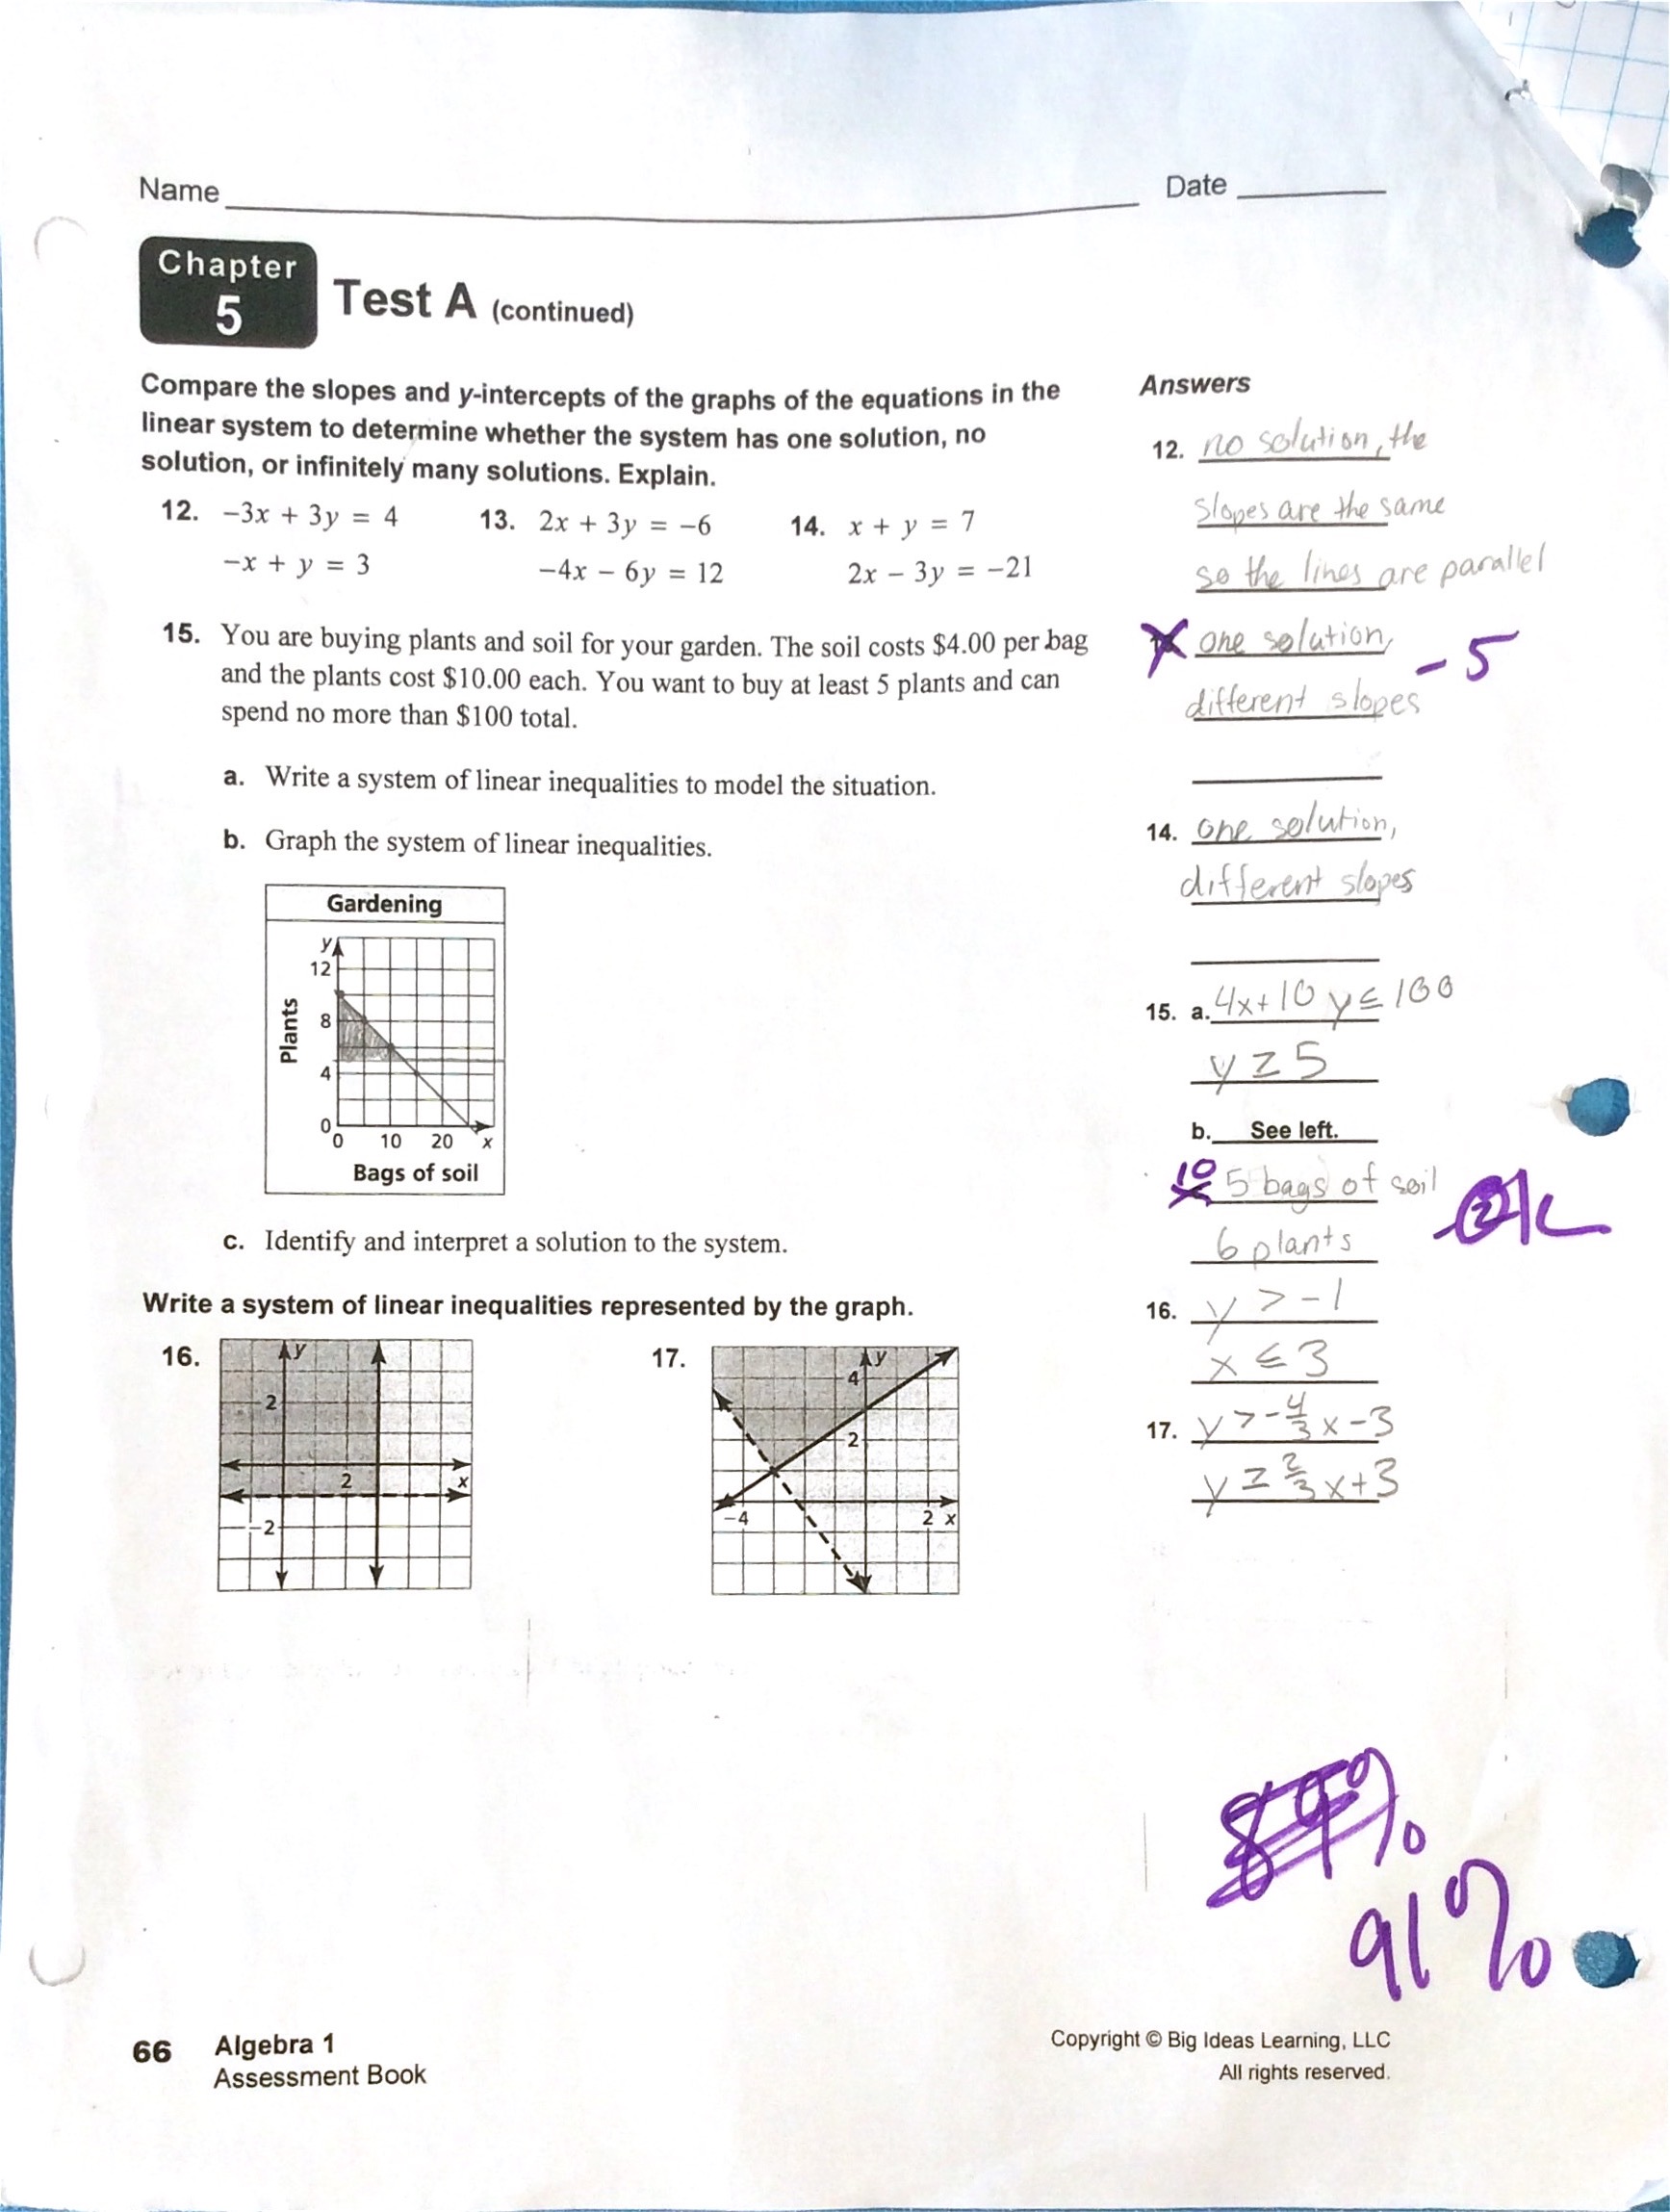 Name Date
Chapter
5
Test A (continued)
Compare the slopes and y-intercepts of the graphs of the equations in the
linear system to determine whether the system has one solution, no
solution, or infinitely many solutions. Explain.
12. −3x + 3y = 4
−x + y = 3
13. 2x + 3y = −6
−4x − 6y = 12
14. x + y = 7
2x − 3y = −21
15. You are buying plants and soil for your garden. The soil costs $4.00 per bag
and the plants cost $10.00 each. You want to buy at least 5 plants and can
spend no more than $100 total.
a. Write a system of linear inequalities to model the situation.
b. Graph the system of linear inequalities.
Gardening
y
12
8
4
0
0 10 20 x
Plants
Bags of soil
c. Identify and interpret a solution to the system.
Write a system of linear inequalities represented by the graph.
16.
y
2
2
x
−2
17.
y
4
2
−4
2 x
Answers
12. no solution, the
slopes are the same
so the lines are parallel
one solution,
−5
different slopes
14. one solution,
different slopes
15. a. 4x+10y≤100
y≥5
b. See left.
10
5 bags of soil
6 plants
16. y > −1
x ≤ 3
17. y > −4/3 x − 3
y ≥ 2/3 x + 3
91%
66 Algebra 1
Assessment Book
Copyright © Big Ideas Learning, LLC
All rights reserved.